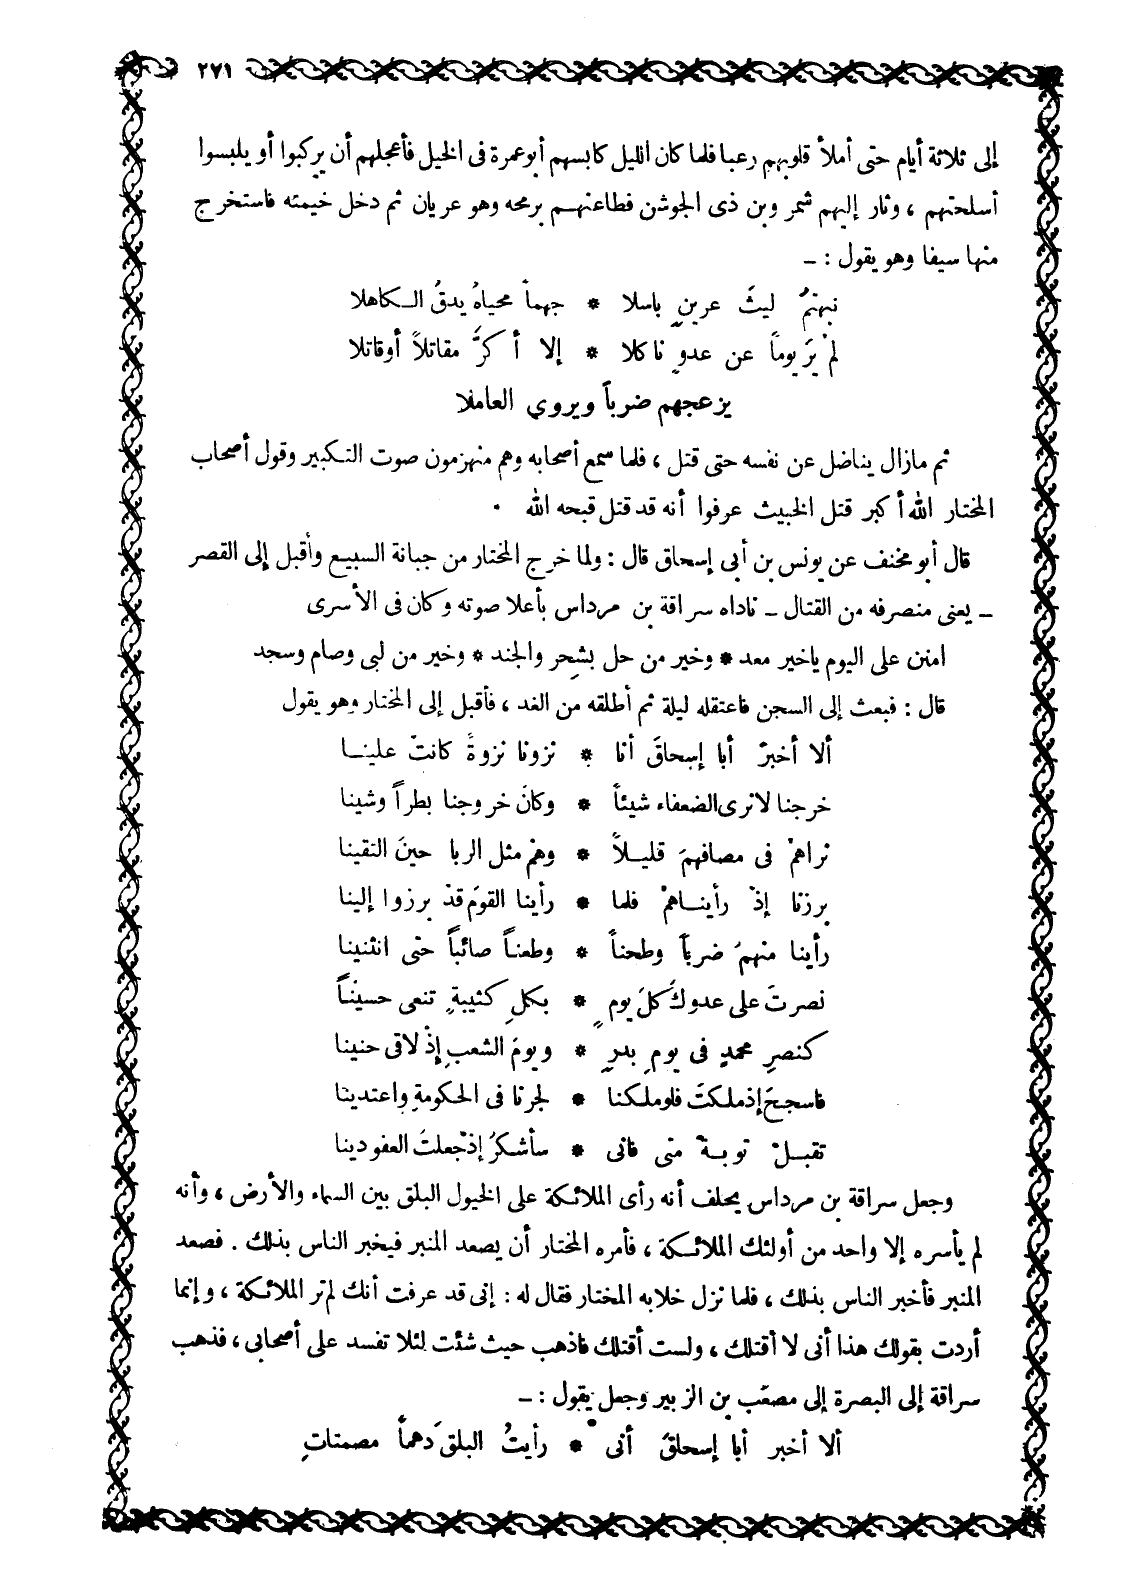 ٢٧١
إلى ثلاثة أيام حتى أملأ قلوبهم رعبا فلما كان الليل كابسهم أبو عمرة فى الخيل فأعجلهم أن يركبوا أو يلبسوا
أسلحتهم ، وثار إليهم شمر وبن ذى الجوشن فطاعنهم برمحه وهو عريان ثم دخل خيمته فاستخرج
منها سيفا وهو يقول : ــ
نبهتمُ ليثَ عرينٍ باسلا * جهماً محياهُ يدقُ الكاهلا
لمْ يَرَ يوماً عن عدوٍ ناكلا * إلا أ كرَّ مقاتلاً أوقاتلا
يزعجهم ضرباً ويروي العاملا
ثم مازال يناضل عن نفسه حتى قتل ، فلما سمع أصحابه وهم منهزمون صوت التكبير وقول أصحاب
المختار الله أكبر قتل الخبيث عرفوا أنه قد قتل قبحه الله .
قال أبو مخنف عن يونس بن أبى إسحاق قال : ولما خرج المختار من جبانة السبيع وأقبل إلى القصر
ــ يعنى منصرفه من القتال ــ ناداه سراقة بن مرداس بأعلا صوته وكان فى الأسرى
امنن على اليوم ياخير معد * وخير من حل بشحر والجند * وخير من لبى وصام وسجد
قال : فبعث إلى السجن فاعتقله ليلة ثم أطلقه من الغد ، فأقبل إلى المختار وهو يقول
ألا أخبرْ أبا إسحاقَ أنا * نزونا نزوةً كانتْ علينا
خرجنا لانرى الضعفاء شيئاً * وكانَ خروجنا بطراً وشينا
نراهمْ فى مصافهمَ قليلاً * وهمْ مثل الربا حينَ التقينا
برزنا إذْ رأيناهمْ فلما * رأينا القومَ قدْ برزوا إلينا
رأينا منهمُ ضرباً وطحناً * وطعناً صائباً حتى انثنينا
نصرتَ على عدوكَ كلَ يومٍ * بكلِ كثيبةٍ تنعى حسيناً
كنصرِ محمدٍ فى يومِ بدرٍ * ويومَ الشعبِ إذْ لاقى حنينا
فاسجحَ إذملكتَ فلوملكنا * لجرنا فى الحكومةِ واعتدينا
تقبلْ توبةً منى فانى * سأشكرُ إذْ جعلتَ العفودينا
وجعل سراقة بن مرداس يحلف أنه رأى الملائكة على الخيول البلق بين السماء والأرض ، وأنه
لم يأسره إلا واحد من أولئك الملائكة ، فأمره المختار أن يصعد المنبر فيخبر الناس بذلك . فصعد
المنبر فأخبر الناس بذلك ، فلما نزل خلابه المختار فقال له : إنى قد عرفت أنك لم تر الملائكة ، وإنما
أردت بقولك هذا أنى لا أقتلك ، ولست أقتلك فاذهب حيث شئت لئلا تفسد على أصحابى ، فذهب
سراقة إلى البصرة إلى مصعب بن الزبير وجعل يقول : ــ
ألا أخبر أبا إسحاقَ أنى * رأيتُ البلقَ دهماً مصمتاتٍ